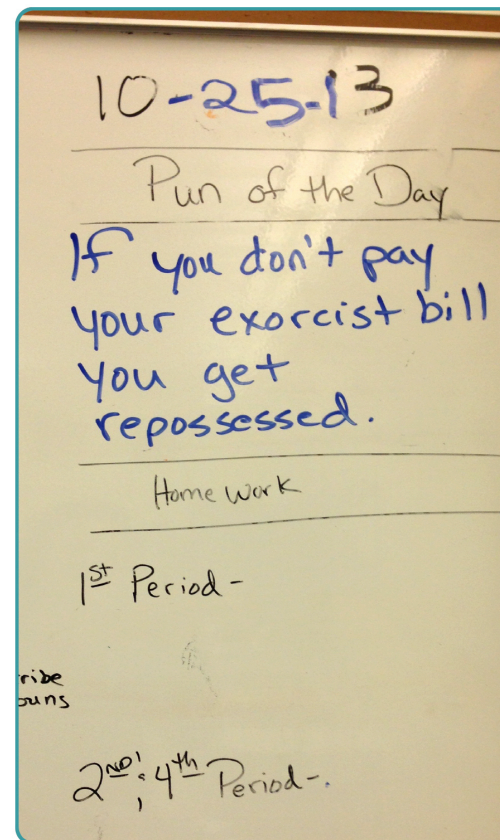 10-25-13
Pun of the Day
If you don't pay
your exorcist bill
you get
repossessed.
Home Work
1st Period-
ribe
ouns
2ND; 4th Period-.